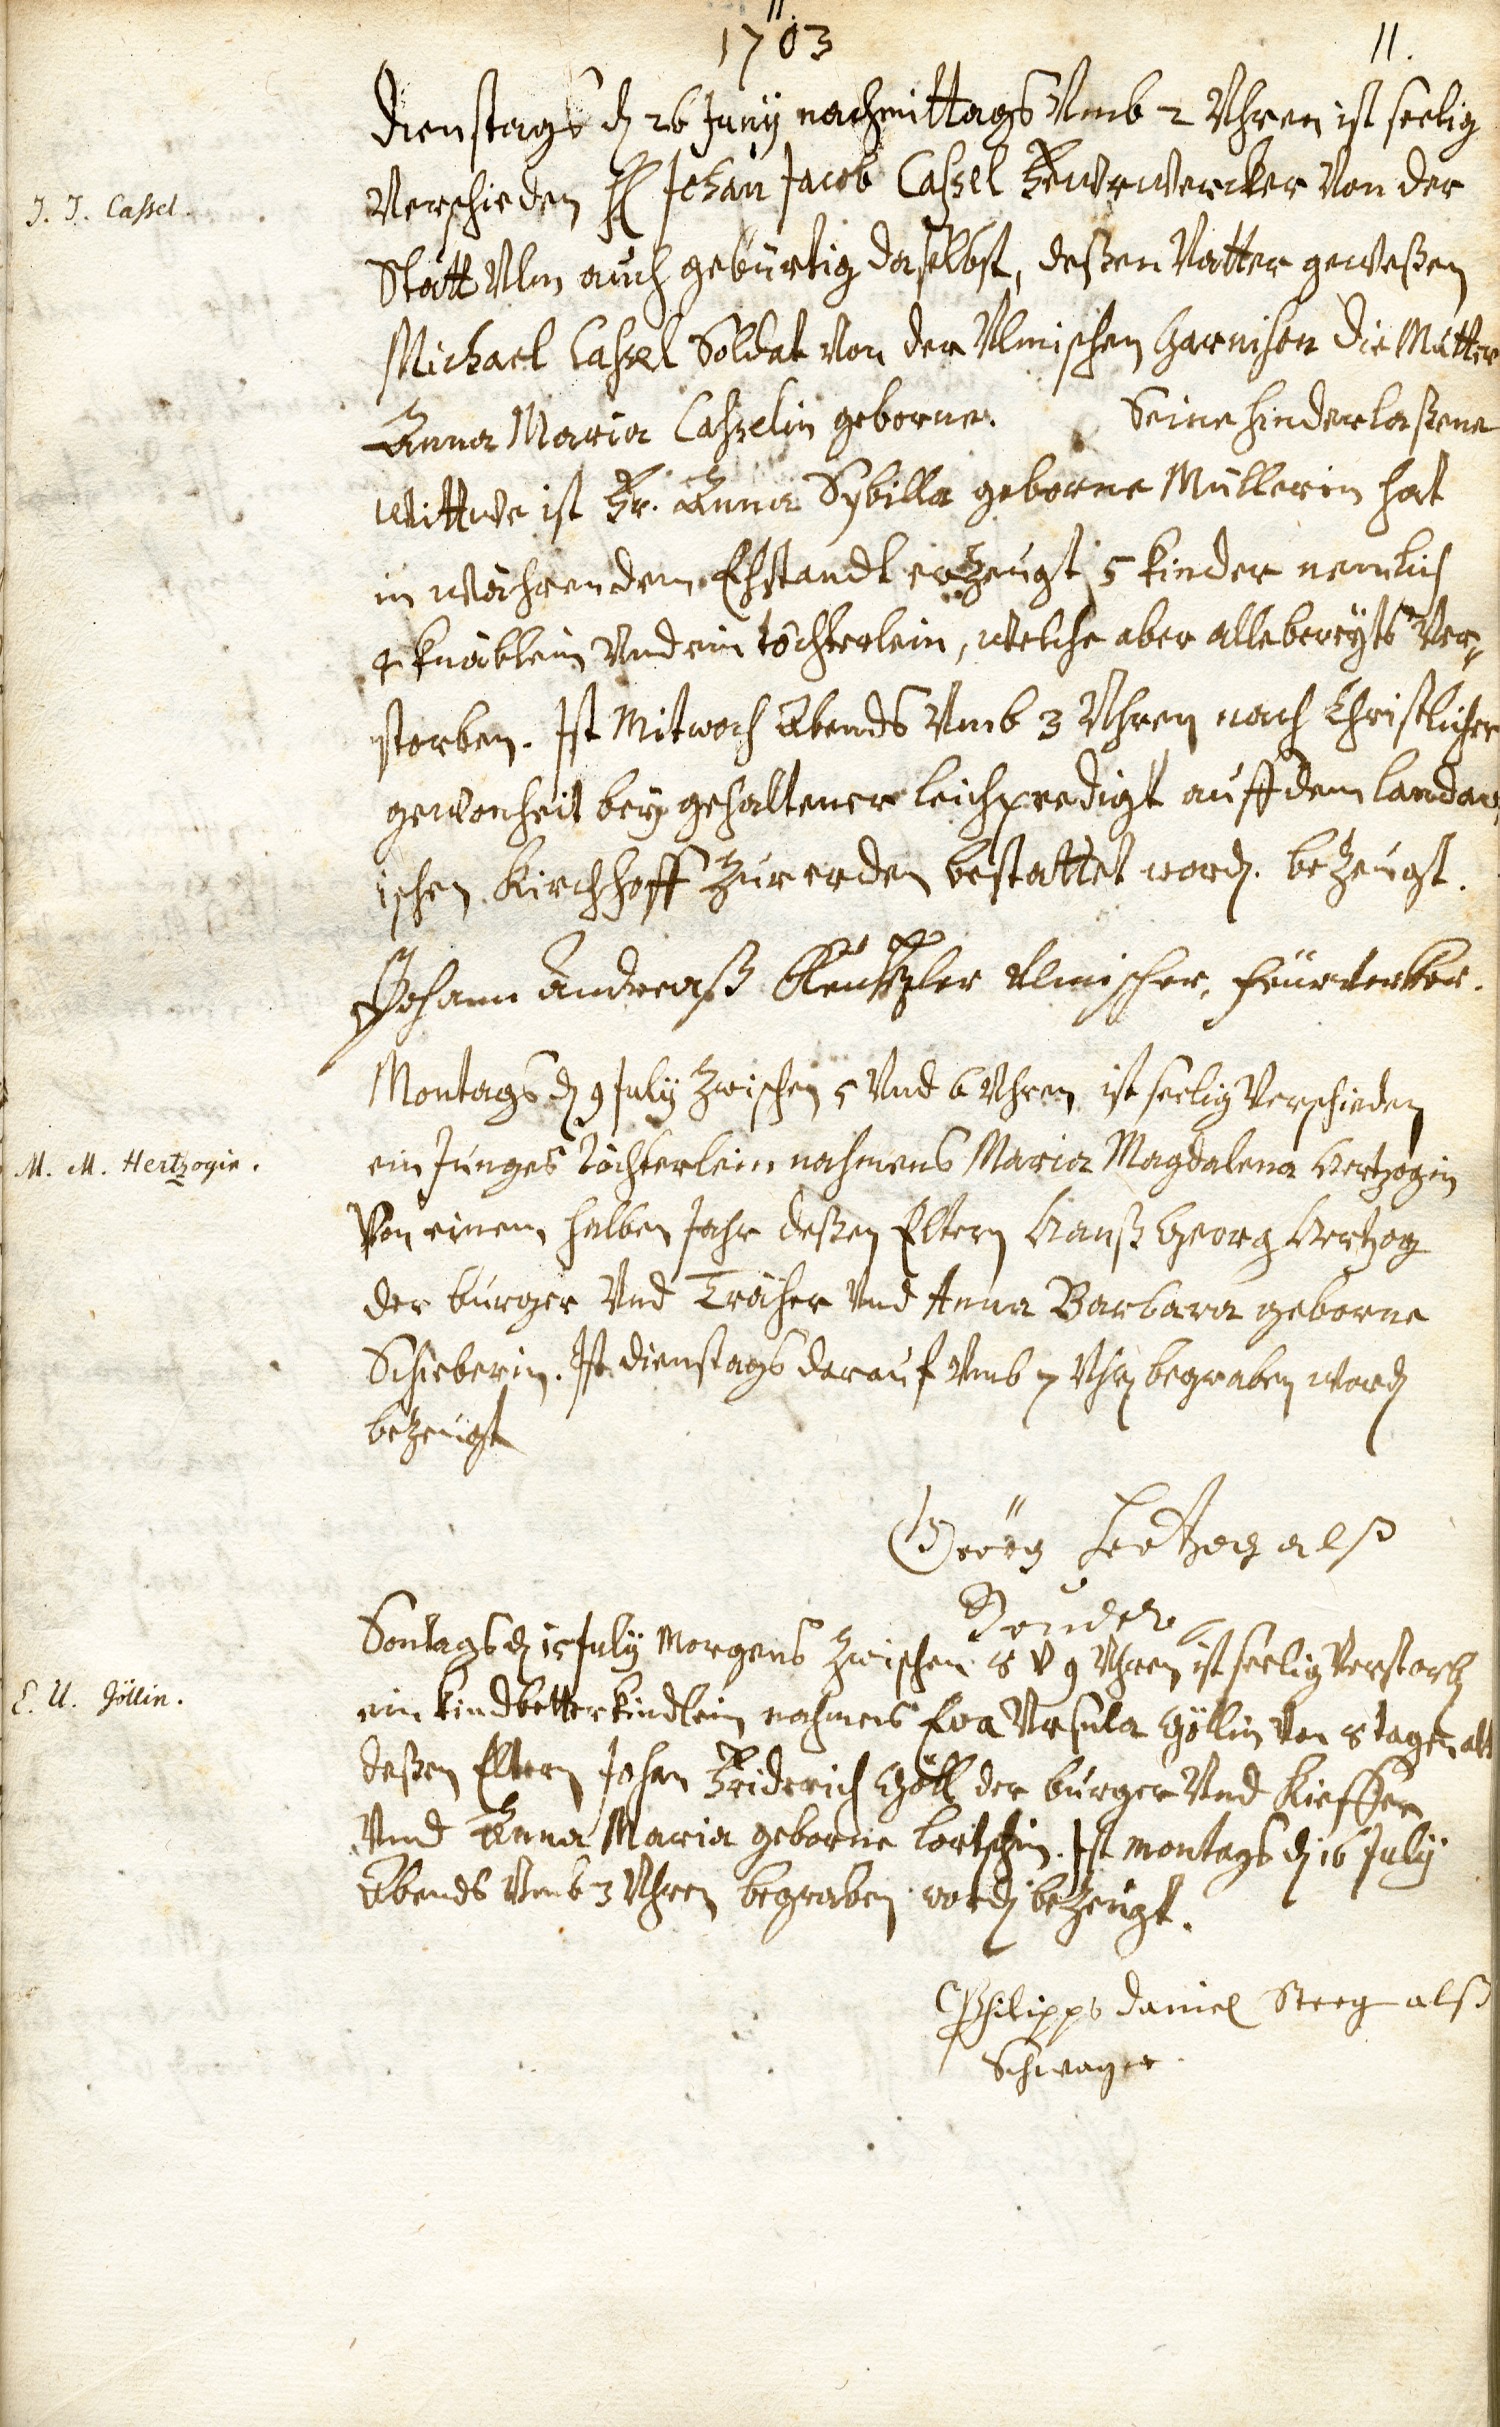 1703
11.
Dienstags d 26 Junÿ nachmittags Vmb 2 Vhren ist seelig
J. J. Cassel.
Verschieden H Johan Jacob Caßel Fewrwercker Von der
Statt Vlm auch gebürtig daselbst, deßen Vatter geweßen
Michael Caßel Soldat Von der Vlmischen Garnison die Mutter
Anna Maria Caßelin geborne. Seine hinderlaßene
Wittwe ist Fr. Anna Sybilla geborne Müllerin hat
in währendem Ehstandt erzeugt 5 kinder nemlich
4 knäblein Vnd ein töchterlein, welche aber allebereyts Ver=
storben. Ist Mitwoch Abends Vmb 3 Vhren nach Christlicher
gewonheit bey gehaltener leichpredigt auff dem landaw
ischen Kirchhoff Zur erden bestattet word. bezeugt.
Johann Andreaß Vlmischer, feürwerker.
Montags d 9 Julÿ Zwischen 5 Vnd 6 Vhren ist seelig Verschieden
M. M. Hertzogin.
ein Junges töchterlein nahmens Maria Magdalena Hertzogin
Von einem halben Jahr deßen Eltern Hanß Georg Hertzog
der burger Vnd Träher Vnd Anna Barbara geborne
Schieberin. Ist dienstags darauf Vmb 7 Vhr begraben word
bezeugt
Geörg hertzog alß
Sontags d 15 Julÿ Morgens Zwischen 8 V 9 Vhren ist seelig Verstorb
E. U. Jöllin.
ein kindbetterkindlein nahmens Eva Vrsula Göllin Von 8 tagen alt
deßen Eltern Johan Friderich Göll der burger Vnd Kieffer
Vnd Anna Maria geborne Lortschin. Ist montags d 16 Julÿ
Abends Vmb 3 Vhren begraben word bezeugt.
Philipps Daniel Steeg alß
Schwager.